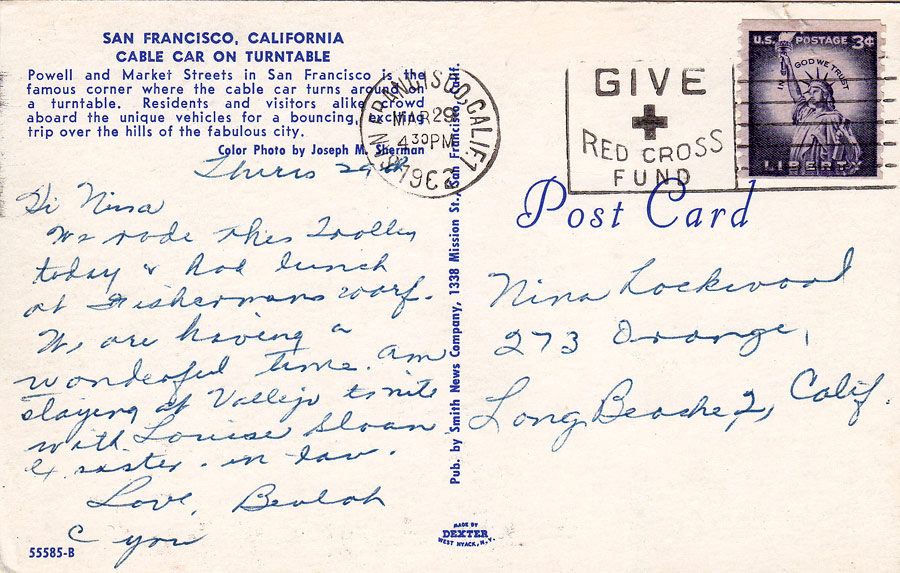 SAN FRANCISCO, CALIFORNIA
CABLE CAR ON TURNTABLE
Powell and Market Streets in San Francisco is the
famous corner where the cable car turns around on
a turntable. Residents and visitors alike crowd
aboard the unique vehicles for a bouncing, exciting
trip over the hills of the fabulous city.
Color Photo by Joseph M. Sherman
Thurs 29th
Hi Nina
We rode this Trolley
today & had lunch
at Fishermans warf.
We are having a
wonderful time. am
staying at Vallejo tonite
with Louise Sloan
& sister-in law.
Love, Beulah
C you
55585-B
Pub. by Smith News Company, 1338 Mission St., San Francisco, Calif.
MADE BY
DEXTER
WEST NYACK, N.Y.
SAN FRANCISCO, CALIF.
MAR 29
4 30 PM
1962
GIVE
RED CROSS
FUND
U.S. POSTAGE 3¢
IN GOD WE TRUST
LIBERTY
Post Card
Nina Lockwood
273 Orange,
Long Beach 2, Calif.